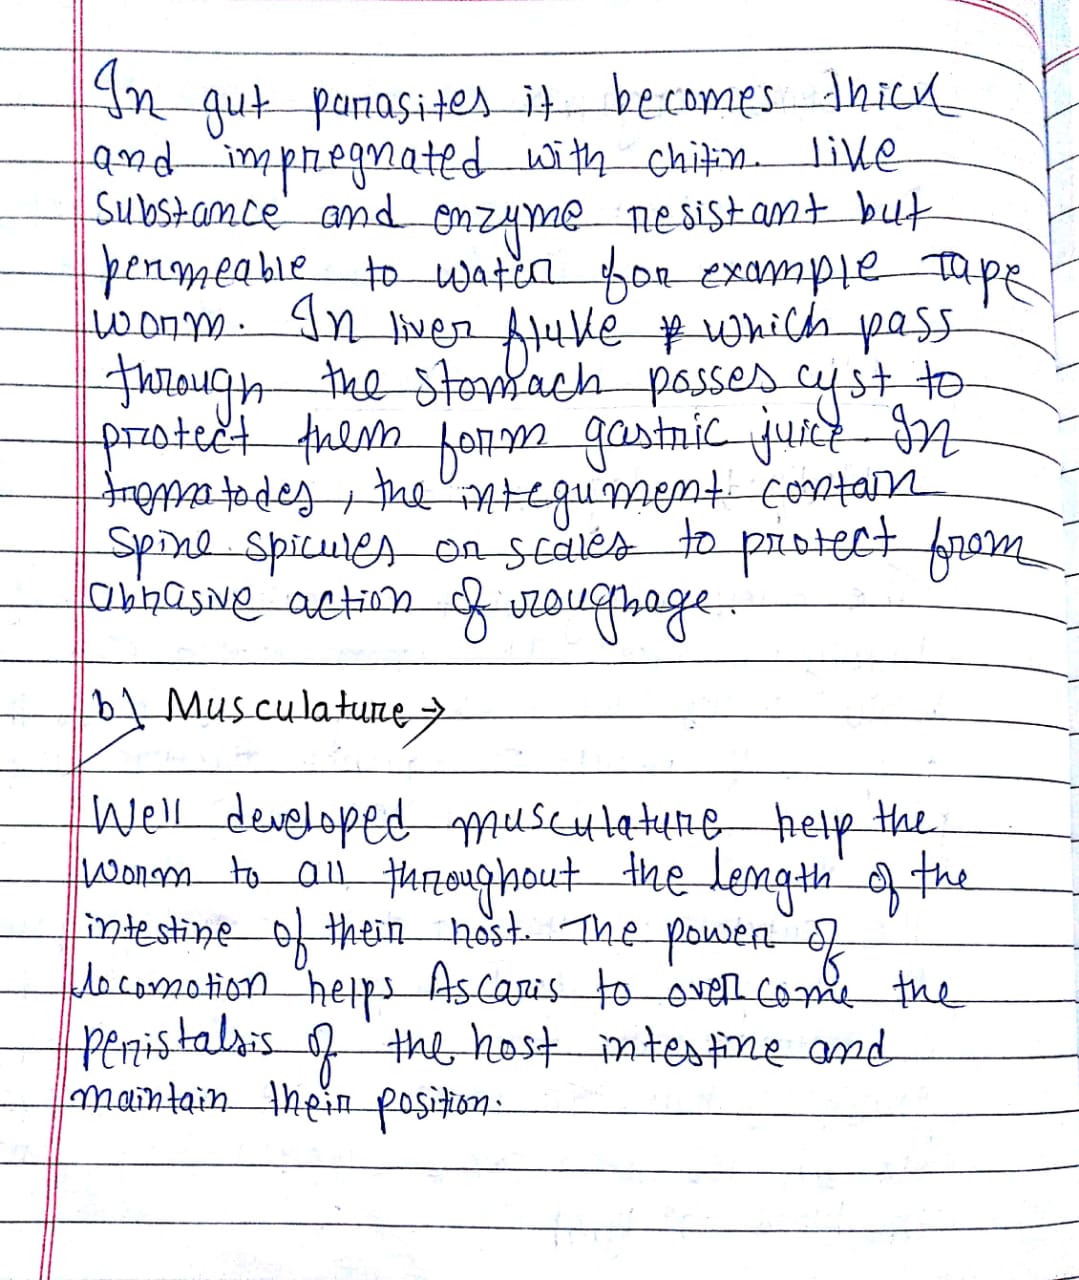 In gut parasites it becomes thick
and impregnated with chitin. like
Substance and enzyme resistant but
permeable to water for example Tape
worm. In liver fluke which pass
through the stomach posses cyst to
protect them form gastric juice. In
trematodes, the integument contain
Spine spicules or scales to protect from
abrasive action of roughage.
b) Musculature →
Well developed musculature help the
worm to all throughout the length of the
intestine of their host. The power of
locomotion helps Ascaris to overcome the
peristalsis of the host intestine and
maintain their position.